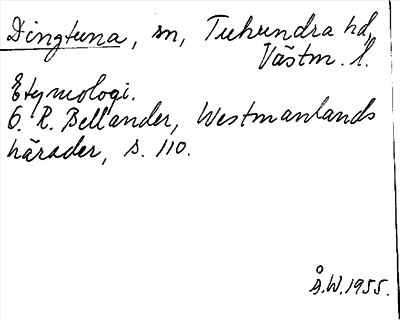 Dingtuna, sn, Tuhundra hd,
Västm. l.
Etymologi.
O. R. Bellander, Westmanlands
härader, s. 110.
Å.W. 1955.